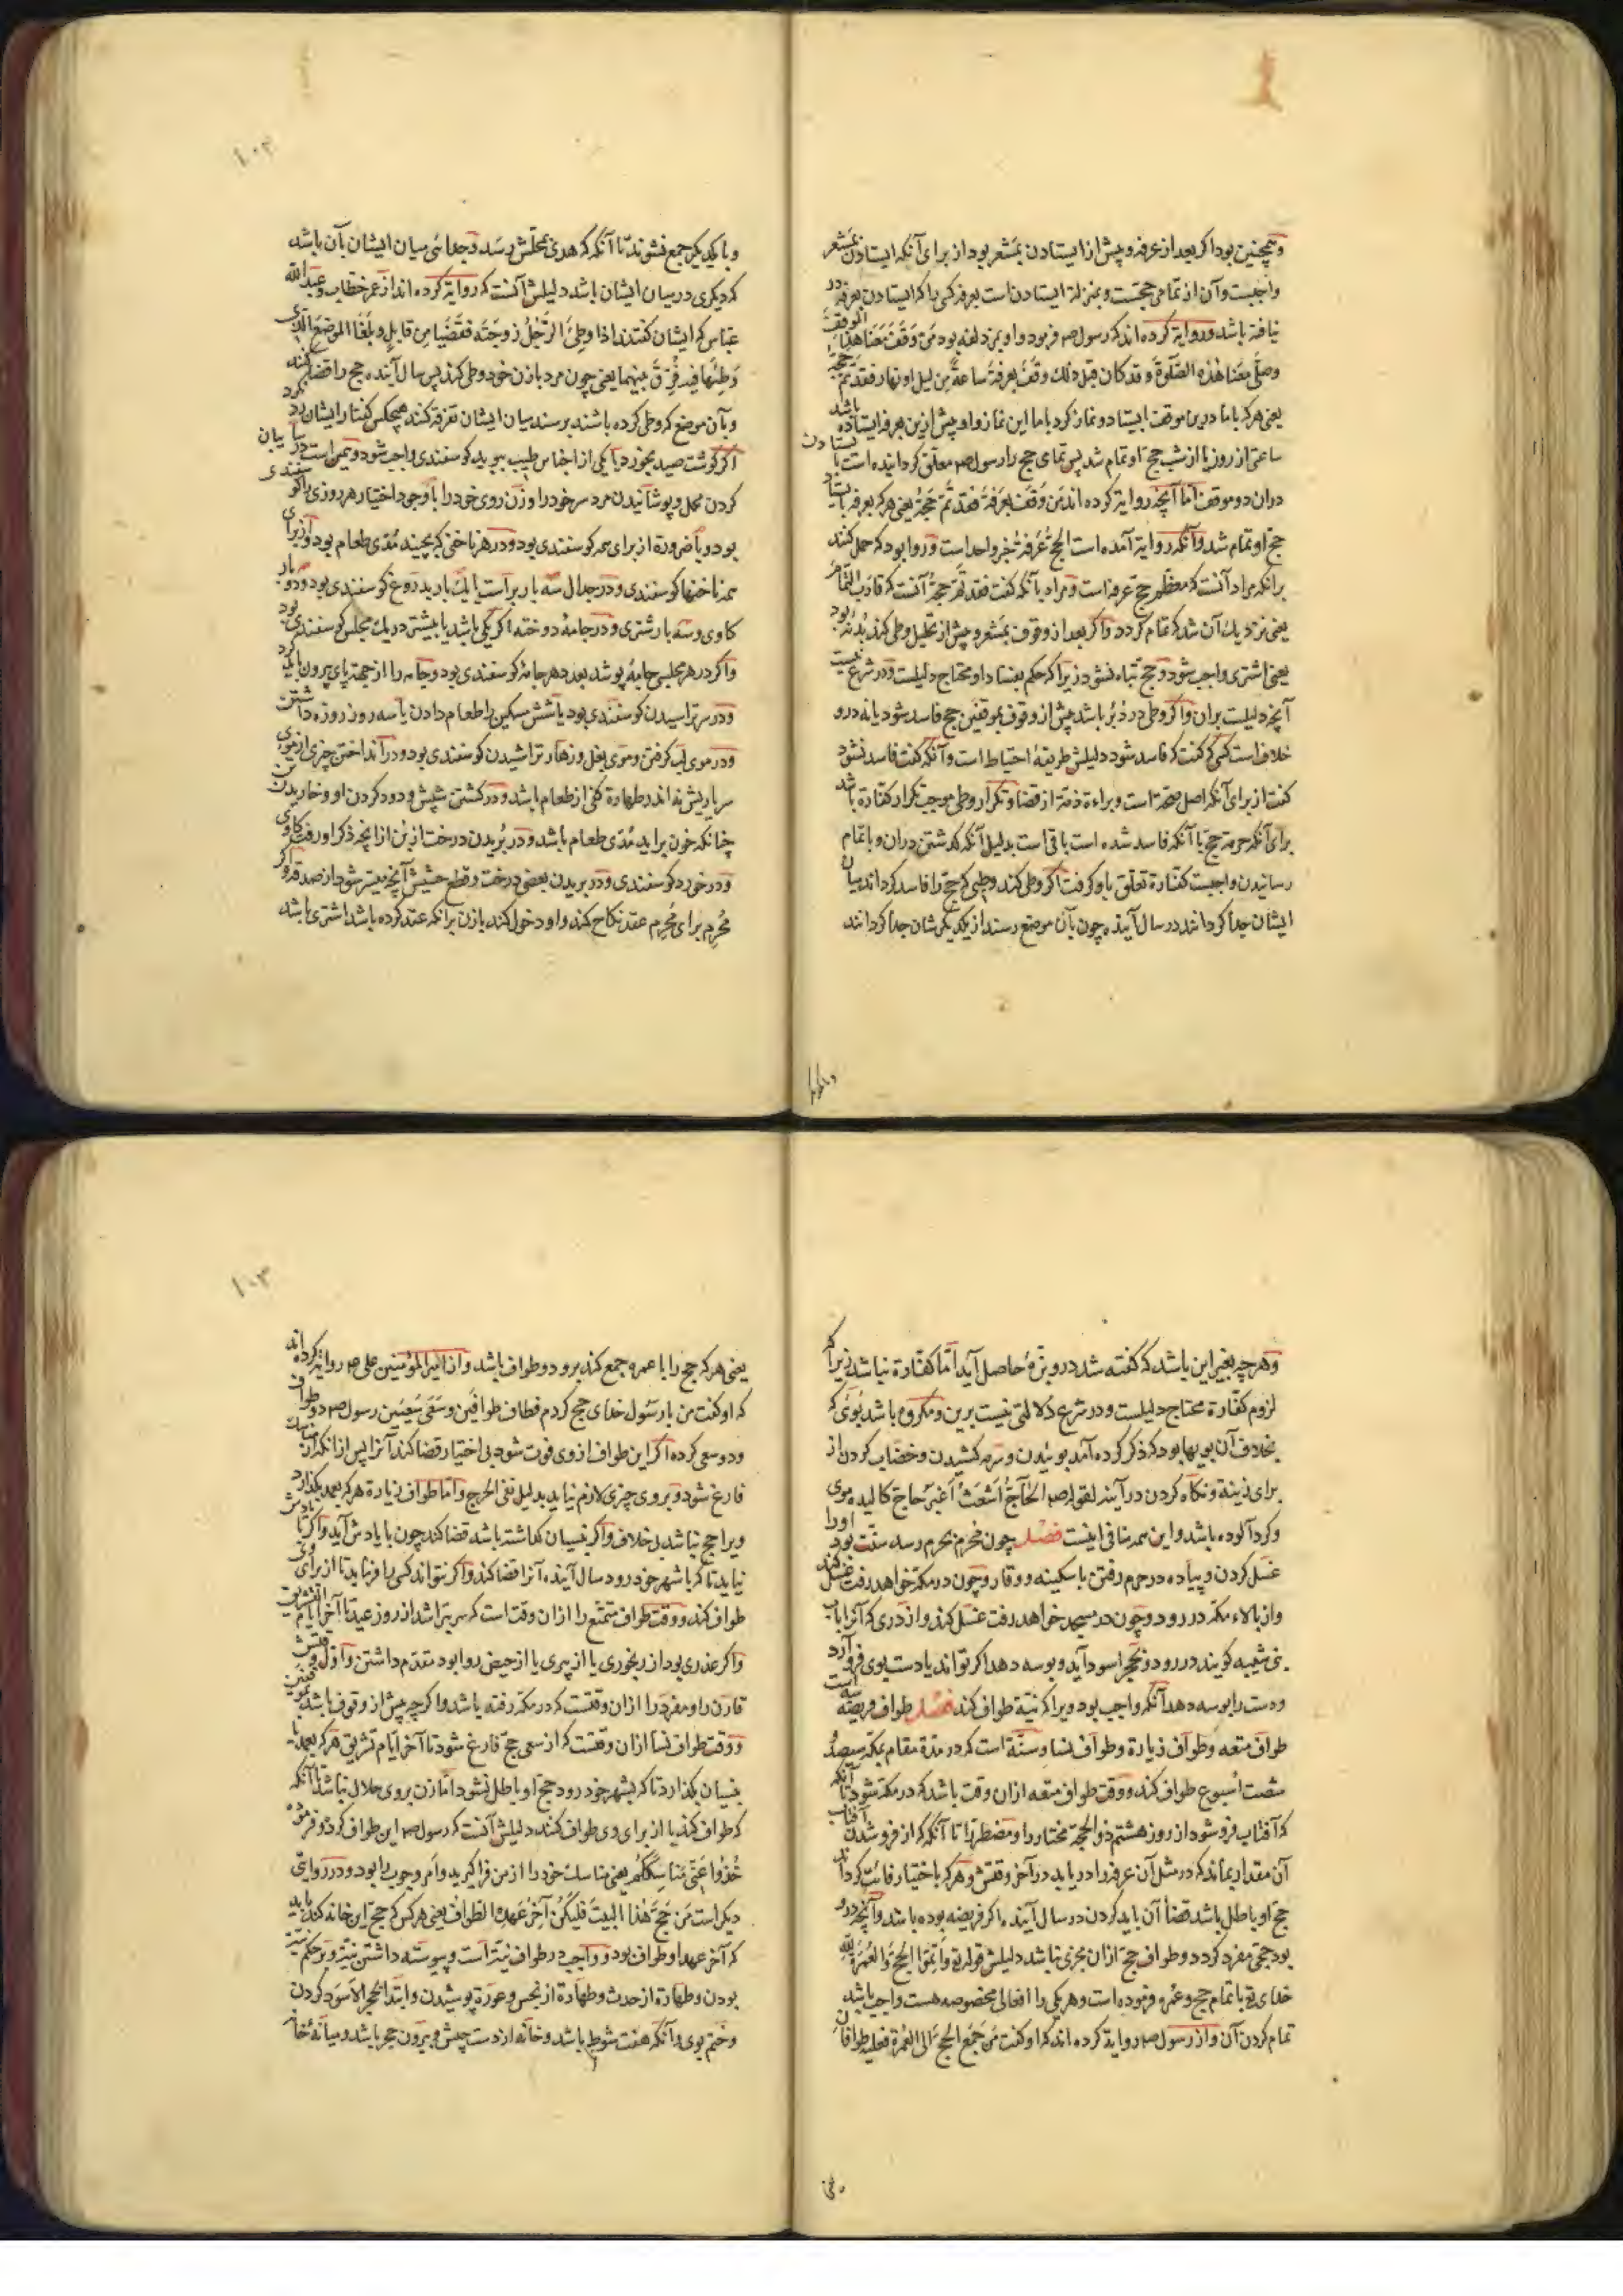 وهمچنین بود اکر بعد از عرفه و پیش از ایستادن بمشعر بود از برای آنکه ایستادن بمشعر
واجبست و آن از تمامی حجست و بمنزلهٔ ایستادن است بعرفه کسی را که ایستادن بعرفه در
نیافته باشد و روایة کرده اند که رسول صم فرمود و او بمزدلفه بود من وقف معنا هذا الموقف
وصلّی معنا هذه الصلوة وقد کان قبل ذلک وقف بعرفة ساعة من لیل او نهار فقد تم حجه
یعنی هرکه باما درین موقف ایستاد و نماز کرد باما این نماز و او پیش ازین بعرفه ایستاده باشد
ساعتی از روز یا از شب حج او تمام شد پس تمامی حج را رسول صم معلق کردانیده است بایستادن
دران دو موقف اما آنچه روایة کرده اند من وقف بعرفة فقد تم حجه یعنی هرکه بعرفه بایستاد
حج او تمام شد و آنکه روایة آمده است الحج عرفة خبر واحد است و روا بود که حمل کنند
برانکه مراد آنست که معظم حج عرفه است و مراد بآنکه کفت فقد تم حجه آنست که قارب التمام
یعنی نزدیک آن شد که تمام کردد و اکر بعد از وقوف بمشعر و پیش از تحلیل وطی کند بدنهٔ بود
یعنی اشتری واجب شود و حج تباه نشود زیرا که حکم بفساد او محتاج دلیلست و در شرع نیست
آنچه دلیلست بران و اکر وطی در دبر باشد پیش از وقوف بموقفین حج فاسد شود یا نه درو
خلاف است کسی که کفت که فاسد شود دلیلش طریقهٔ احتیاط است و آنکه کفت فاسد نشود
کفت از برای آنکه اصل صحة است و براءة ذمة از قضا و تکرار وطی موجب تکرار کفارة باشد
برای آنکه حرمة حج با آنکه فاسد شده است باقی است بدلیل آنکه کذشتن دران و باتمام
رسانیدن واجبست کفارة تعلق باو کرفت اکر وطی کند وطیی که حج را فاسد کرداند میان
ایشان جدا کردانند در سال آینده چون بآن موضع رسند از یکدیکرشان جدا کردانند
وبا یکدیکر جمع نشوند تا آنکه که هدی بمحلش رسد و جدائی میان ایشان بآن باشد
که دیکری در میان ایشان باشد دلیلش آنست که روایة کرده اند از عمر خطاب و عبدالله
عباس که ایشان کفتند اذا وطئ الرجل زوجته فقضیا من قابل و بلغا الموضع الذی
وطئها فیه فرّق بینهما یعنی چون مرد بازن خود وطی کند پس سال آینده حج را قضا کنند
وبآن موضع که وطی کرده باشند برسند میان ایشان تفرقه کنند هیچکس کفتار ایشان رد نکرد
اکر کوشت صید بخورد یا یکی از اجناس طیب ببوید کوسفندی واجب شود و همین است در سایبان
کردن محمل و پوشانیدن مرد سر خود را و زن روی خود را با وجود اختیار هر روزی را کوسفندی
بود و باضرورة از برای همه کوسفندی بود و در هر ناخنی که بچیند مدّی طعام بود و از برای
همه ناخنها کوسفندی و در جدال سه بار براست یا یک بار بدروغ کوسفندی بود و دو بار
کاوی و سه بار شتری و در جامهٔ دوخته اکر یکی باشد یا بیشتر در یک مجلس کوسفندی بود
واکر در هر مجلسی جامه پوشد بعدد هر جامهٔ کوسفندی بود و جامه را از جهة پای بیرون باید کرد
ودر سر تراشیدن کوسفندی بود یا شش مسکین را طعام دادن یا سه روز روزه داشتن
ودر موی لب کرفتن و موی بغل و زهار تراشیدن کوسفندی بود و در انداختن چیزی از موی
سر یا ریش نه اندر طهارة کفی از طعام باشد و در کشتن شپش و دور کردن او و خاریدن تن
چنانکه خون براید مدّی طعام باشد و در بریدن درخت از بن از انچه ذکر او رفت کاوی
ودر خورد کوسفندی و در بریدن بعضی درخت و قطع حشیش آنچه میسر شود از صدقه و اکر
محرم برای محرم عقد نکاح کند و او دخول کند بازن برانکه عقد کرده باشد اشتری باشد
وهرچه بغیر این باشد که کفته شد درو بزهٔ حاصل آید اما کفارة نباشد زیرا که
لزوم کفارة محتاج دلیلست و در شرع دلالتی نیست برین و مکروه باشد بوئی که
بخلاف آن بویها بود که ذکر کرده آمد بوئیدن و سرمه کشیدن و خضاب کردن از
برای زینة و نکاه کردن در آینه لقوله صم الحاج اشعث اغبر حاج کالیده موی
وکرد آلوده باشد و این همه منافی اینست فصل چون محرم بحرم رسد سنت بود اورا
غسل کردن و پیاده در حرم رفتن باسکینه و وقار و چون در مکه خواهد رفت غسل کند
واز بالاء مکه در رود و چون در مسجد خواهد رفت غسل کند و از دری که آنرا باب
بنی شیبه کویند در رود و بحجر اسود آید و بوسه دهد اکر تواند یا دست بوی فرو آرد
ودست را بوسه دهد آنکه واجب بود ویرا که نیّة طواف کند فصل طواف فریضه سه است
طواف متعه و طواف زیارة و طواف نسا و سنّة است که در مدة مقام بمکه سیصد و
شصت اسبوع طواف کند و وقت طواف متعه ازان وقت باشد که در مکه شود تا آنکه
که آفتاب فرو شود از روز هشتم ذوالحجة مختار را و مضطر را تا آنکه که از فرو شدن آفتاب
آن مقدار بماند که در مثل آن عرفه را دریابد در آخر وقتش و هرکه باختیار فائت کرداند
حج او باطل باشد قضا آن باید کردن در سال آینده اکر فریضه بوده باشد و آنچه درو
بود حجی مفرد کردد و طواف حج ازان مجزی نباشد دلیلش قوله تع و اتموا الحج و العمرة لله
خدای تع باتمام حج و عمره فرموده است و هر یکی را افعالی مخصوصه هست واجب باشد
تمام کردن آن و از رسول صم روایة کرده اند که او کفت من جمع الحج الی العمرة فعلیه طوافان
یعنی هرکه حج را با عمره جمع کند برو دو طواف باشد و از امیرالمؤمنین علی صم روایة کرده اند
که او کفت من با رسول خدای حج کردم فطاف طوافین و سعی سعیین رسول صم دو طواف
ودو سعی کرد اکر این طواف از وی فوت شود بی اختیار قضا کند آنرا پس از انکه از مناسک
فارغ شود و بروی چیزی لازم نیاید بدلیل نفی الحرج و اما طواف زیارة هرکه بعمد بکذارد
ویرا حج نباشد بی خلاف و اکر بنسیان کماشته باشد قضا کند چون بایادش آید و اکر یادش
نیاید تا که باشهر خود رود سال آینده آنرا قضا کند و اکر نتواند کسی را فرماید تا از برای وی
طواف کند و وقت طواف متمتع را ازان وقت است که سر تراشد از روز عید تا آخر ایام التشریق
واکر عذری بود از رنجوری یا از پیری یا از حیض روا بود مقدم داشتن و اول وقتش
قارن را و مفرد را ازان وقتست که در مکه رفته باشد و اکرچه پیش از وقوف باشد بموقفین
ووقت طواف نسا ازان وقتست که از سعی حج فارغ شود تا آخر ایام تشریق هرکه بعمد یا
بنسیان بکذارد تا که بشهر خود رود حج او باطل نشود اما زن بروی حلال نباشد تا آنکه
که طواف کند یا از برای وی طواف کنند دلیلش آنست که رسول صم این طواف کرد و فرموده
خذوا عنی مناسککم یعنی مناسک خود را از من فرا کیرید و امر وجوب را بود و در روایتی
دیکر است من حج هذا البیت فلیکن آخر عهده الطواف یعنی هرکس که حج این خانه کند باید
که آخر عهد او طواف بود و واجب در طواف نیّة است و پیوسته داشتن نیّة و بر حکم نیة
بودن و طهارة از حدث و طهارة از نجس و عورة پوشیدن و ابتدا بحجر الاسود کردن
وختم بوی و آنکه هفت شوط باشد و خانه از دست چپش و بیرون حجر باشد و میانهٔ خانه